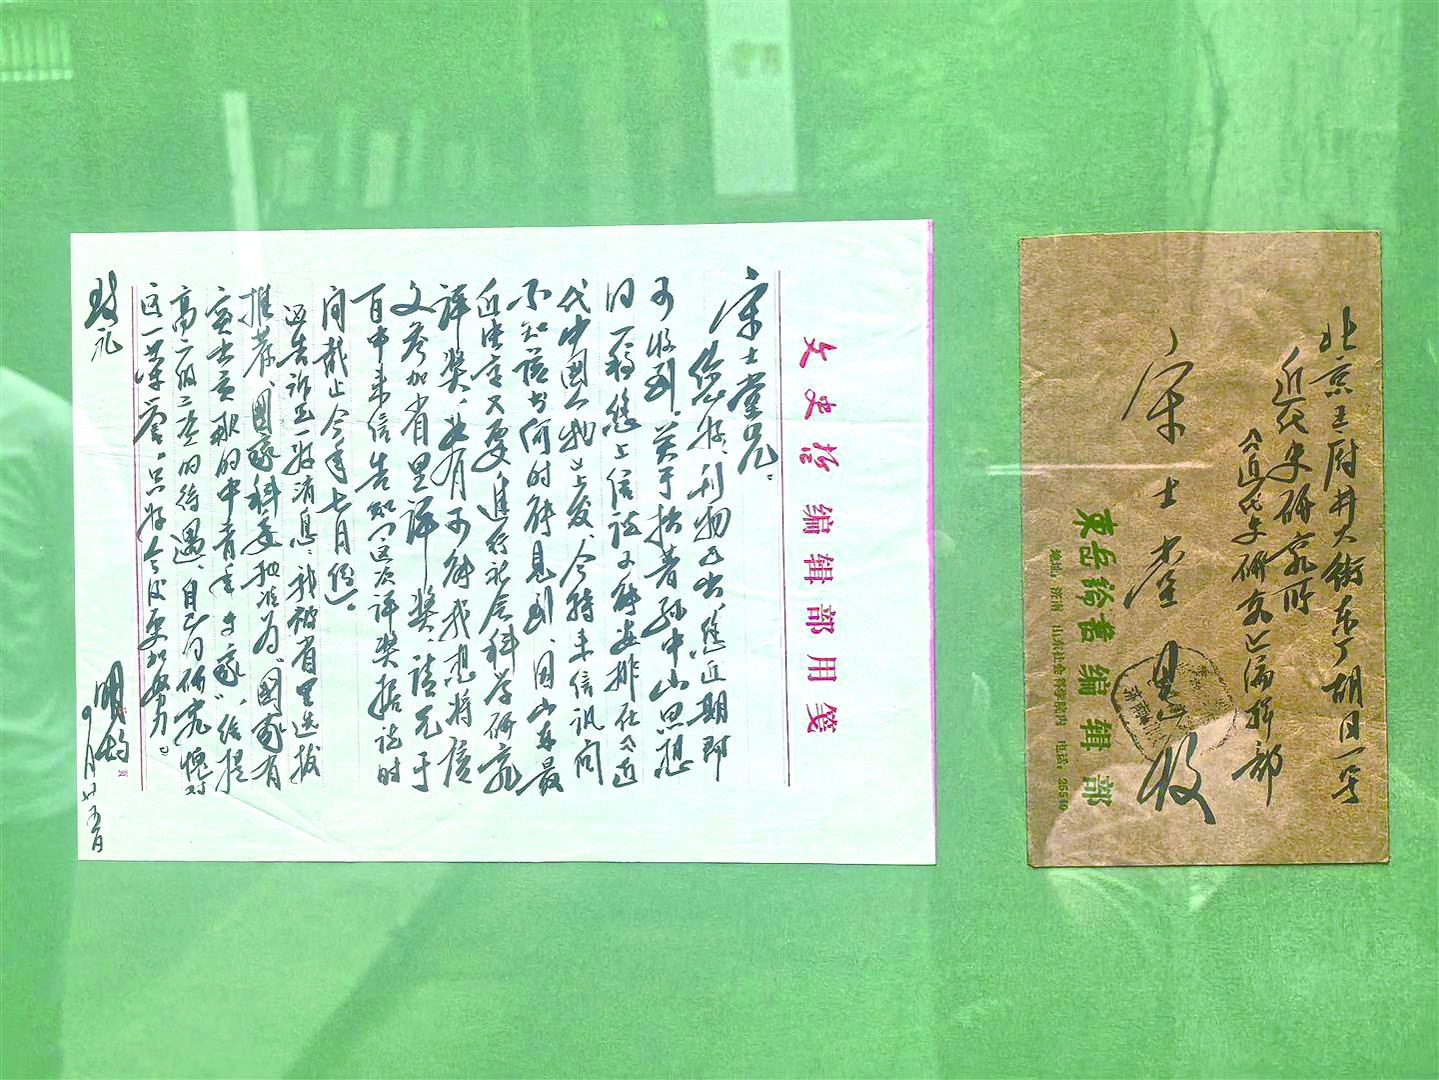 文史哲编辑部用笺
宋士堂兄：
您好，刊物已出，您近期即
可收到。关于拙著孙中山思想
同一稿，您上信说可能安排在《近
代中国人物》上发，今特来信讯问
不知该书何时能见到，因山东最
近决定又要进行社会科学研究
评奖，如有可能我想将该
文参加省里评奖，请兄于
百中来信告知（这次评奖据说时
间截止今年七月份）。
还告诉兄一好消息，我被省里选拔
推荐，国家科委批准为"国家有
突出贡献的中青年专家"，给提
高二级工资的待遇，自己的研究愧对
这一荣誉，只好今后更加努力。
致
礼
明
月廿五日
北京王府井大街东厂胡同一号
近代史研究所
《近代史研究》编辑部
宋士堂 收
东岳论丛编辑部
地址 济南 山东社会科学院内 电话 26510